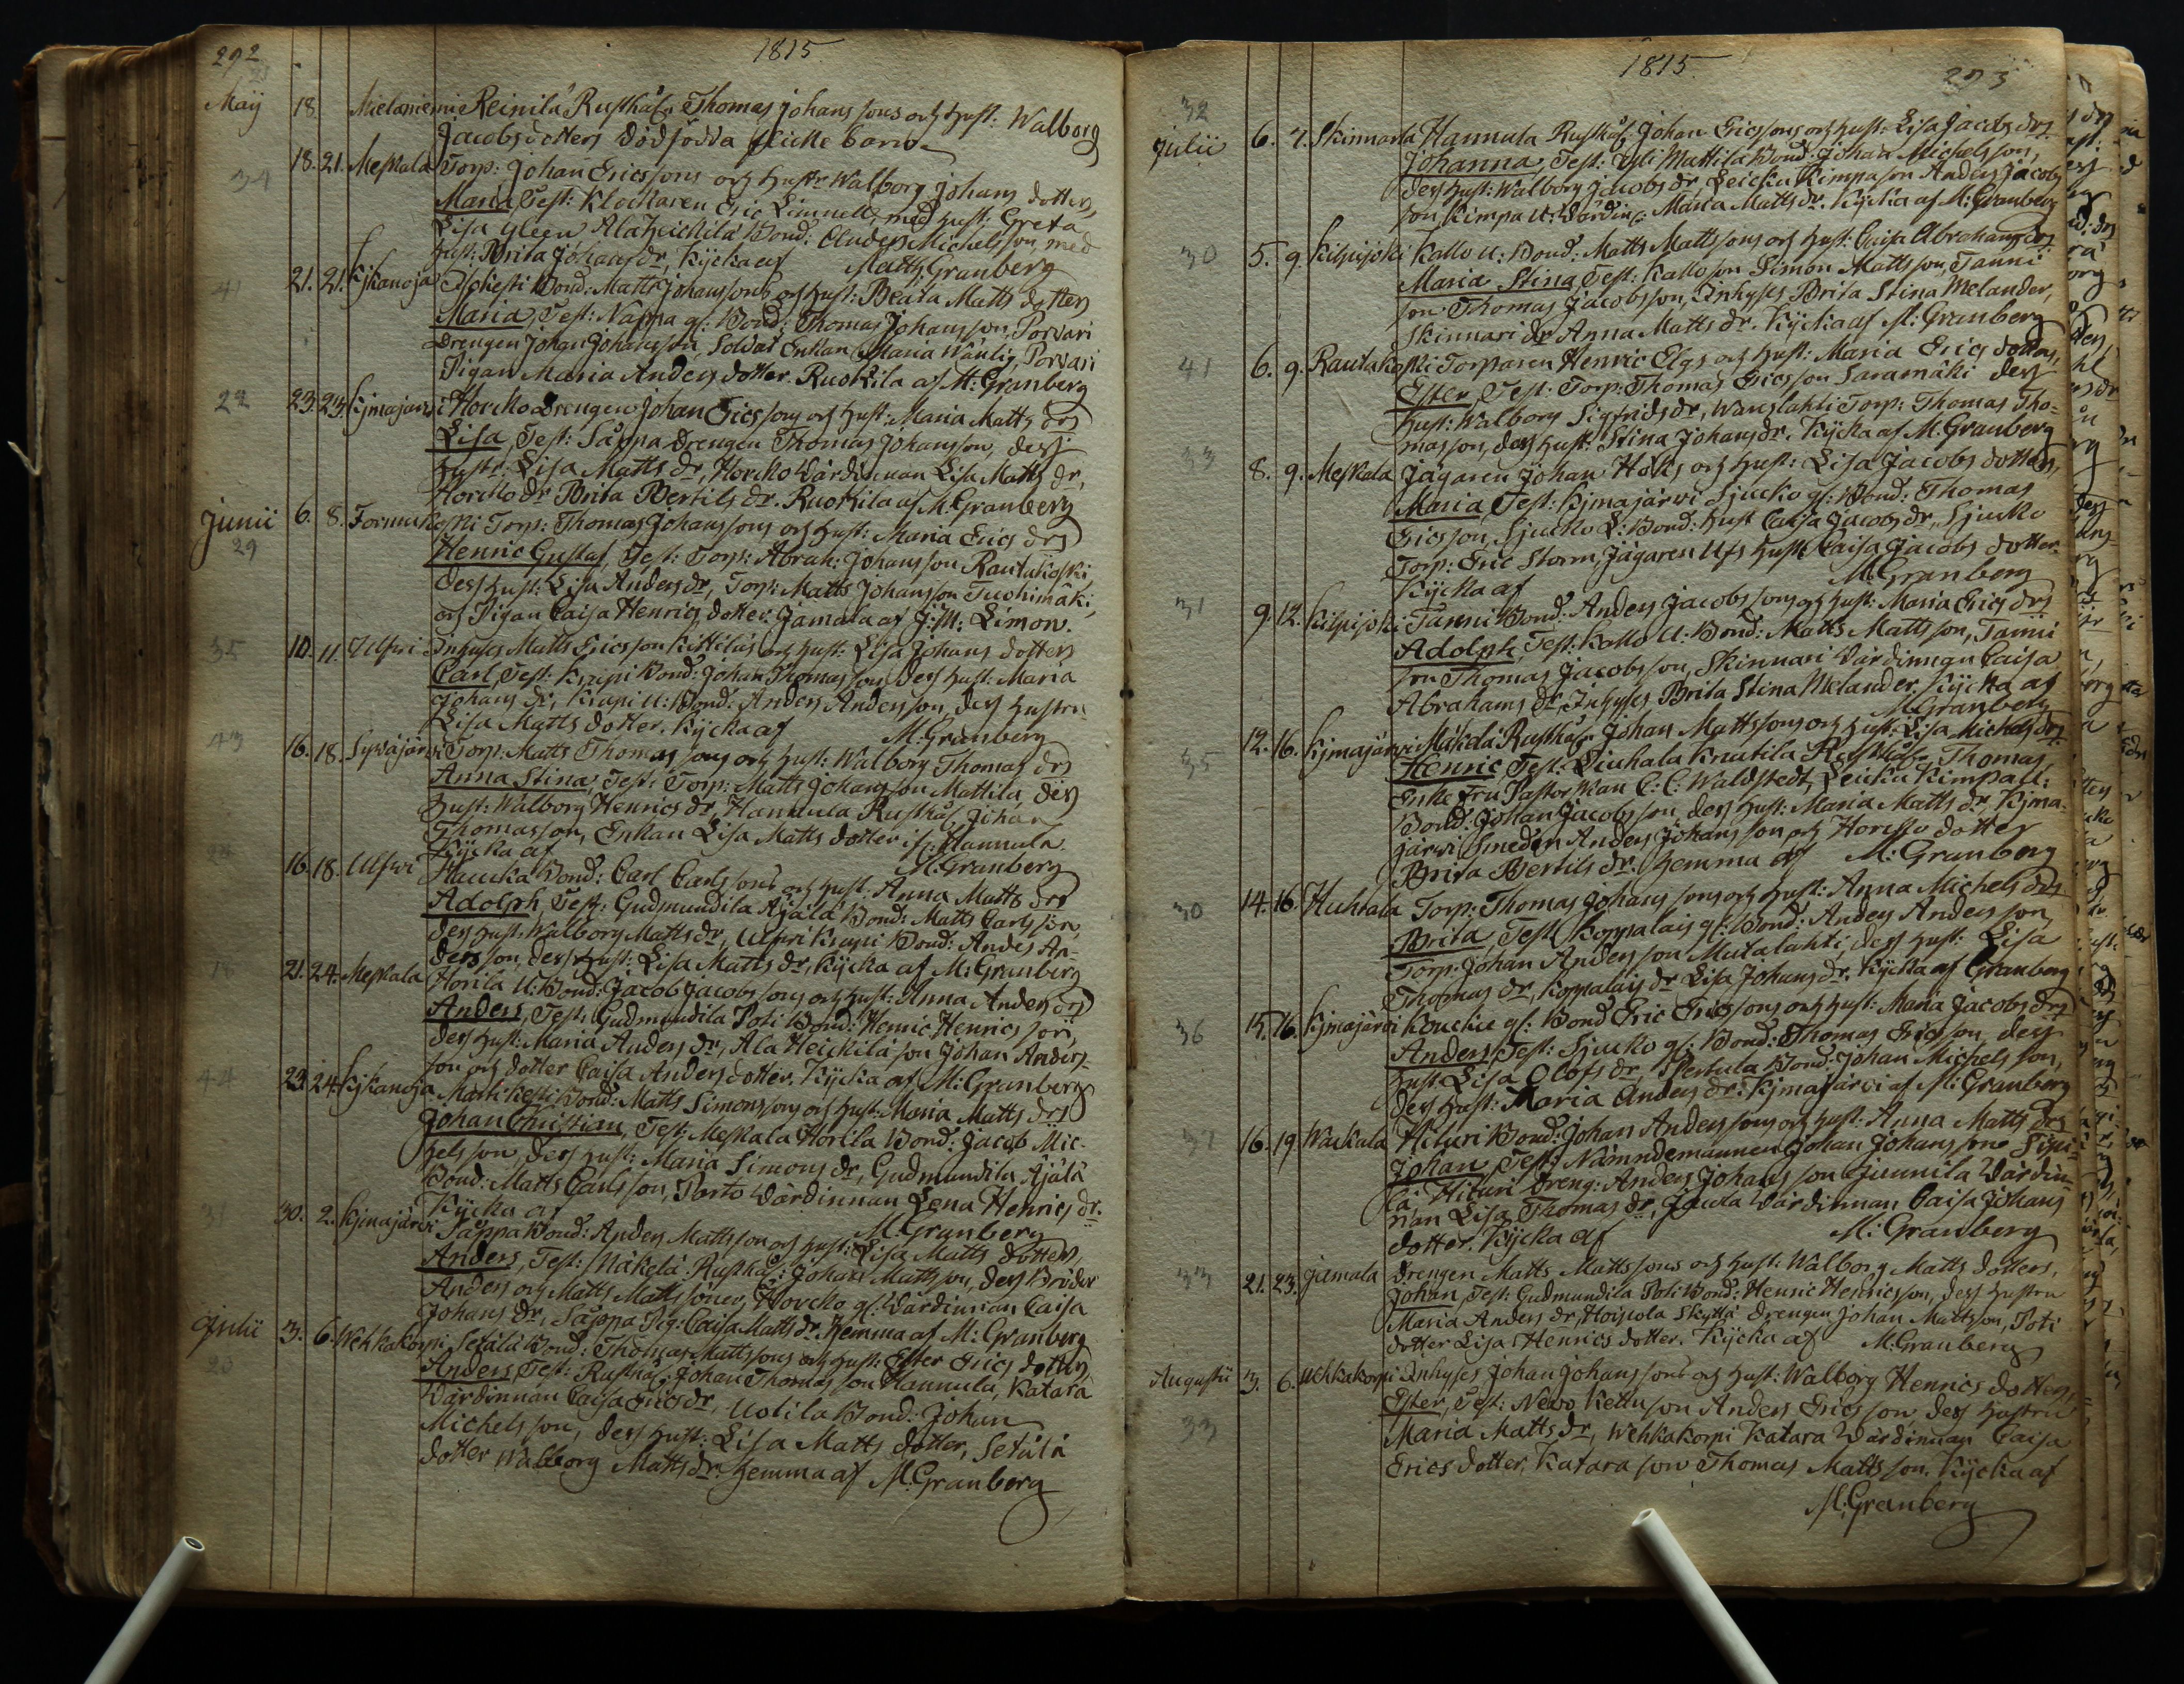 292
1815
Maij 18. Mielaniemi Reinilä Rusthåll: Thomas Johanssons och Hust: Walborg
Jacobsdotters dödfödda flicke barn
34 18. 21. Meskala Torp: Johan Ericssons och Hustr: Walborg Johans dotters
Maria, Test: Klockaren Eric Limnell, med Hust: Greta
Lisa Gleen Ala Heickilä Bond: Anders Michelsson, med
Hust: Brita Johans Dr, Kyrka af Matth: Granberg
41 21. 21. Kijkanoja Bond: Matts Johanssons och Hust: Beata Matts dotters
Maria, Test: Nappa gl: Bond: Thomas Johansson, Porvari
Drengen Johan Johansson, Soldat Enkan Maria Wänlig, Porvari
Pigan Maria Anders dotter. Ruokila af M: Granberg
22 23. 23. Kijmajärvi Horcko Drengen Johan Ericssons och Hust: Maria Matts drs
Lisa, Test: Säppa Drengen Thomas Johansson, dess
Hustr: Lisa Matts Dr, Horcko Värdinnan Lisa Matts Dr,
Horcko Dr Brita Bertils Dr. Ruokila af M: Granberg
Junii 6. 8. Formukoski Torp: Thomas Johanssons och Hust: Maria Erics drs
29 Henric Gustaf, Test: Torp: Abrah: Johansson Rautakoski,
dess Hust: Lisa Anders Dr, Torp: Matts Johansson Tuohimäki,
och Pigan Caisa Henrics dotter. Jamala af J: M: Limon.
35 10. 11. Ulfwi Inhyses Matts Ericsson Kittiläs och Hust: Lisa Johans dotters
Carl, Test: Krapi Bond: Johan Thomasson dess Hust: Maria
Johans Dr, Krapi U: Bond: Anders Andersson, dess Hustru
Lisa Matts dotter. Kyrka af M: Granberg
43 16. 18. Sywäjärvi Torp: Matts Thomas sons och Hust: Walborg Thomas drs
Anna Stina, Test: Torp: Matts Johansson Mattila, dess
Hust: Walborg Henrics Dr, Hannula Rusthåll: Johan
Thomasson, Enkan Lisa Matts dotter ifr: Hannula.
Kyrka af M: Granberg
16. 18. Ulfwi Haucka Bond: Carl Carlssons och Hust: Anna Matts drs
Adolph, Test: Gudmundila Äjälä Bond: Matts Carlsson,
dess Hust: Walborg Matts Dr, Ulfwi Krapi Bond: Anders An-
dersson, dess Hust: Lisa Matts Dr, Kyrka af M: Granberg
18 21. 24. Meskala Horila U: Bond: Jacob Jacobssons och Hust: Anna Anders drs
Anders, Test: Gudmundila Poti Bond: Henric Henricsson,
dess Hust: Maria Anders Dr, Ala Heickilä son Johan Anders-
son och dotter Caisa Anders dotter. Kyrka af M: Granberg
44 23. 24. Kijkanoja Martikesti Bond: Matts Simonssons och Hust: Maria Matts drs
Johan Christian, Test: Meskala Horila Bond: Jacob Mic-
helsson, dess Hust: Maria Simons Dr, Gudmundila Äjälä
Bond: Matts Carlsson, Porto Värdinnan Lena Henrics Dr.
Kyrka af M: Granberg
30. 2. Kijmajärvi Säppä Bond: Anders Mattsson och Hust: Lisa Matts dotters
Anders, Test: Mäkelä Rusthåll: Johan Mattsson, dess Bröder
Anders och Matts Mattssöner, Horcko gl: Värdinnan Caisa
Johans Dr, Säppa Pig: Caisa Matts Dr. Hemma af M: Granberg
Julii 3. 6. Wehkakorpi Setälä Bond: Thomas Mattssons och Hust: Ester Erics dotters
20 Anders, Test: Rusthåll: Johan Thomasson Hannula, Katara
Värdinnan Caisa Erics Dr, Uotila Bond: Johan
Michelsson, dess Hust: Lisa Matts dotter, Setälä
dotter Walborg Matts Dr. Hemma af M: Granberg
1815
293
32
Julii 6. 7. Skinnarla Hannula Rusthåll: Johan Ericssons och Hust: Lisa Jacobs drs
Johanna, Test: Mattila Bond: Johan Michelsson,
dess Hust: Walborg Jacobs Dr, Leicku Kimpa son Anders Jacobs
son Kimpa U: Värdin: Maria Matts Dr. Kyrka af M: Granberg
30 5. 9. Kilpijoki Kallo U: Bond: Matts Mattssons och Hust: Caisa Abrahams drs
Maria Stina, Test: Kallo son Simon Mattsson, Tanni
son Thomas Jacobsson, Inhyses Brita Stina Melander,
Skinnari Dr Anna Matts Dr. Kyrka af M: Granberg
41 6. 9. Rautakoski Torparen Henric Elgs och Hust: Maria Erics dotters,
Ester, Test: Torp: Thomas Ericsson Saramäki dess
Hust: Walborg Sigfrids Dr, Wanslahti Torp: Thomas Tho-
masson, dess Hust: Stina Johans Dr. Kyrka af M: Granberg
23 8. 9. Meskala Jägaren Johan Höks och Hust: Lisa Jacobs dotters,
Maria, Test: Kijmajärvi Sjucko gl: Bond: Thomas
Ericsson, Sjucko L: Bond: Hust Caisa Jacobs Dr, Sjucko
Torp: Eric Storm, Jägaren Ufs Hust: Caisa Jacobs dotter.
Kyrka af M: Granberg
31 9. 12. Kilpijoki Tanni Bond: Anders Jacobssons och Hust: Maria Erics drs
Adolph, Test: Kallo U: Bond: Matts Mattsson, Tanni
son Thomas Jacobsson, Skinnari Värdinnan Caisa
Abrahams Dr, Inhyses Brita Stina Melander. Kyrka af
M: Granberg
35 12. 16. Kijmajärvi Mäkelä Rusthåll: Johan Mattssons och Hust: Lisa Michels drs
Henric, Test: Liuhala Knutila Rusthåll: Thomas,
Enke Fru Pastorskan C: C: Waldstedt, Leicku Kimpa U:
Bond: Johan Jacobsson, dess Hust: Maria Matts Dr. Kijma-
järvi Smeden Anders Johansson och Horcko dotter
Brita Bertils Dr. Hemma af M: Granberg
30 14. 16. Huhtala Torp: Thomas Johanssons och Hust: Anna Michels drs
Brita, Test: Koppalais gl: Bond: Anders Andersson,
Torp: Johan Andersson Mutalahti, dess Hust: Lisa
Thomas Dr, Koppalais Dr Lisa Johans Dr. Kyrka af Granberg
36 15. 16. Kijmajärvi Kouckie gl: Bond Eric Ericssons och Hust: Maria Jacobs drs
Anders, Test: Sjucko gl: Bond: Thomas Ericsson, dess
Hust: Lisa Olofs Dr. Pertula Bond: Johan Michelsson,
dess Hust: Maria Anders Dr: Kijmajärvi af M: Granberg
37 16. 19. Wackala Hituri Bond: Johan Anderssons och Hust: Anna Matts drs
Johan, Test: Nämndemannen Johan Johansson Sipi-
lä, Hituri Dreng: Anders Johansson Junnila Värdin-
nan Lisa Thomas Dr, Jaula Värdinnan Caisa Johans
dotter. Kyrka af M: Granberg
33 21. 23. Jamala Drengen Matts Mattssons och Hust: Walborg Matts dotters,
Johan, Test: Gudmundila Poti Bond: Henric Henricsson, dess Hustru
Maria Anders Dr, Hoipola Skyttä Drengen Johan Mattsson, Poti
dotter Lisa Henrics dotter. Kyrka af M: Granberg
Augustii 3. 6. Wehkakorpi Inhyses Johan Johanssons och Hust: Walborg Henrics dotters,
33 Ester, Test: Newo Kettu son Anders Ericsson, dess Hustru
Maria Matts Dr, Wehkakorpi Katara Värdinnan Caisa
Erics dotter, Katara son Thomas Mattsson. Kyrka af
M: Granberg